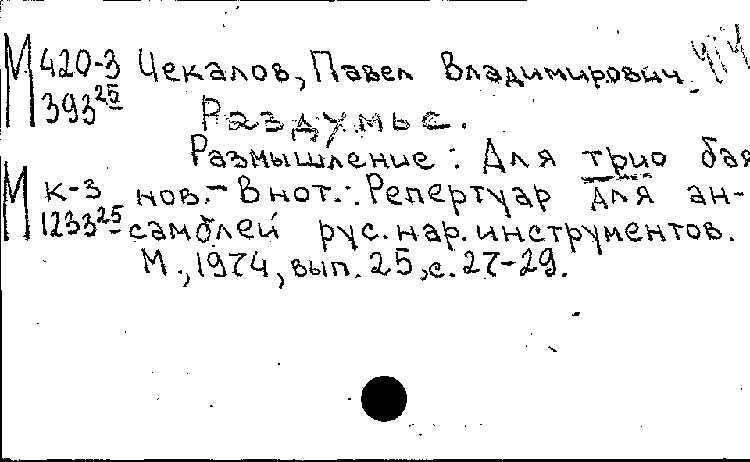 М 420-3 Чекалов, Павел Владимирович
393 25 Раздумье.
Размышление: Для трио бая
М К-3 нов.- В нот.: Репертуар для ан-
1233 25 самблей рус. нар. инструментов.
М., 1974, вып. 25, с. 27-29.